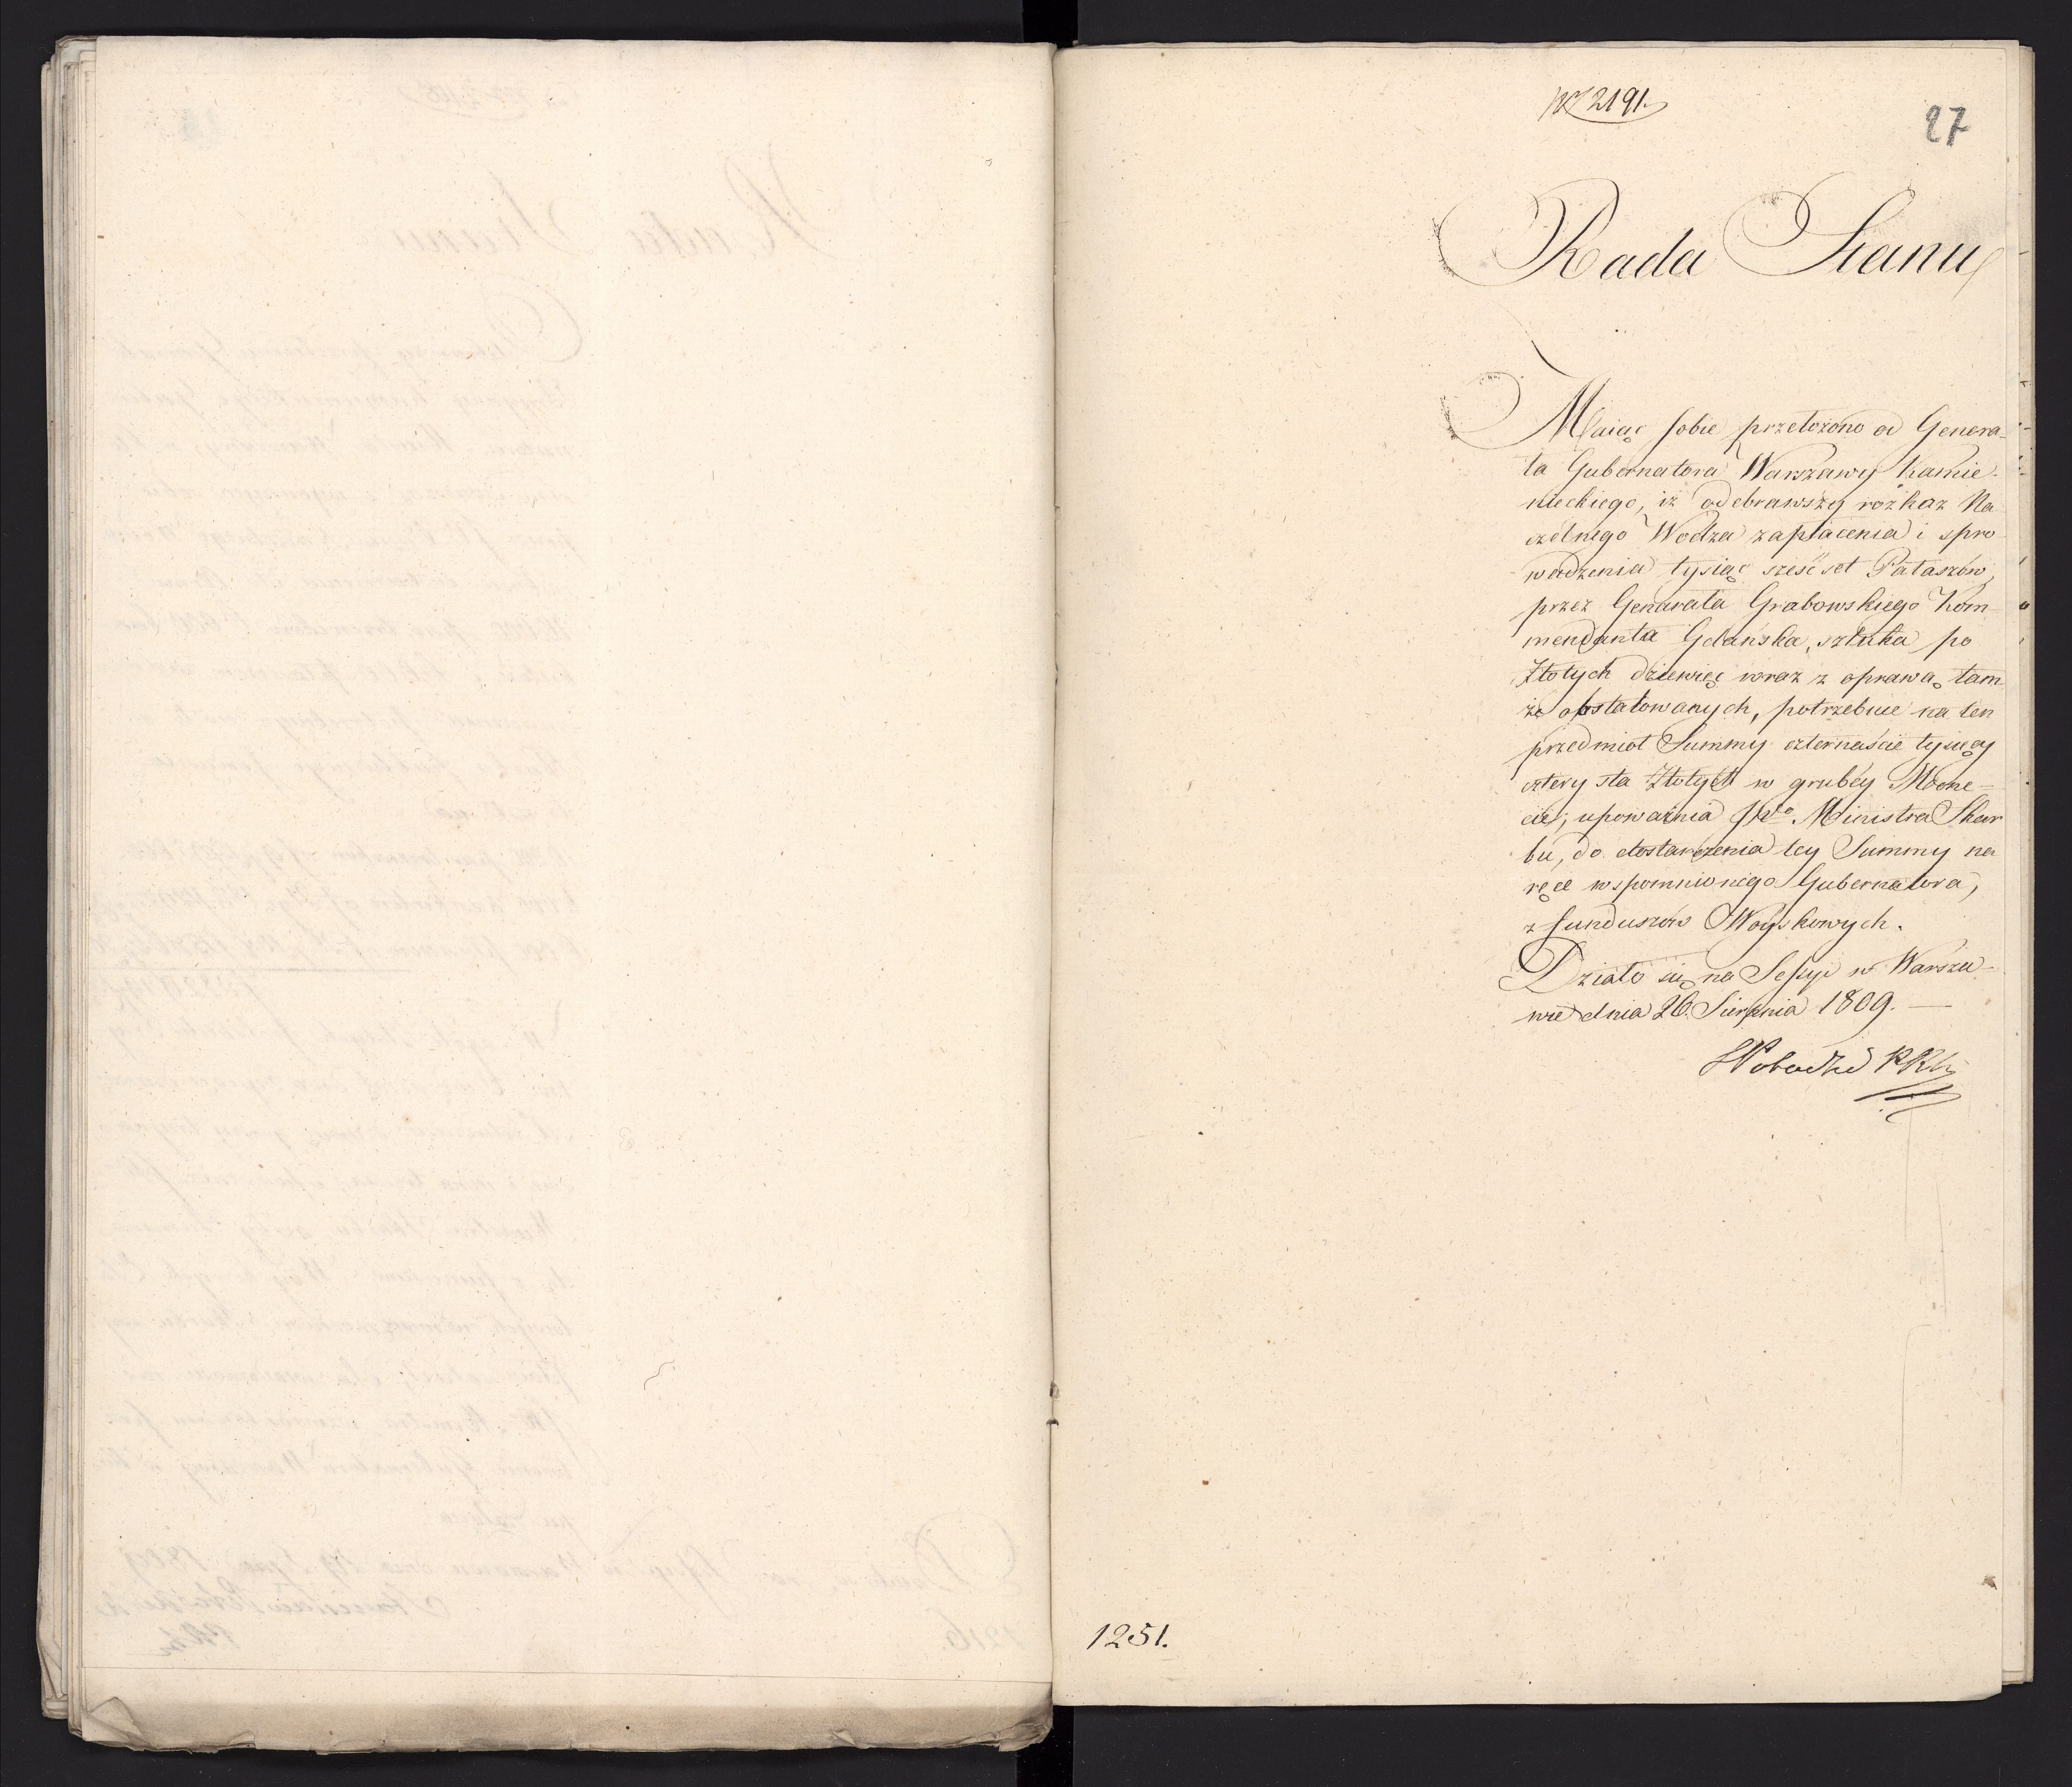 N 2191.
27
Rada Stanu
Maiąc sobie przełożono od Genera-
ła Gubernatora Warszawy Kamie-
nieckiego, iż odebrawszy rozkaz Na
czelnego Wodza zapłacenia i spro
wadzenia tysiąc sześćset Pałaszów,
przez Generała Grabowskiego Kom-
mendanta Gdańska, sztuka po
Złotych dziewięć wraz z oprawą tam
że obstalowanych, potrzebuie na ten
przedmiot Summy czternaście tysięcy
cztery sta Złotych w grubey Mone-
cie; upoważnia Ministra Skar
bu, do dostarczenia tey Summy na
ręce wspomnionego Gubernatora,
z funduszów Woyskowych.
Działo się na Sessyi w Warsza-
wie dnia 26. Sierpnia 1809. —
1251.